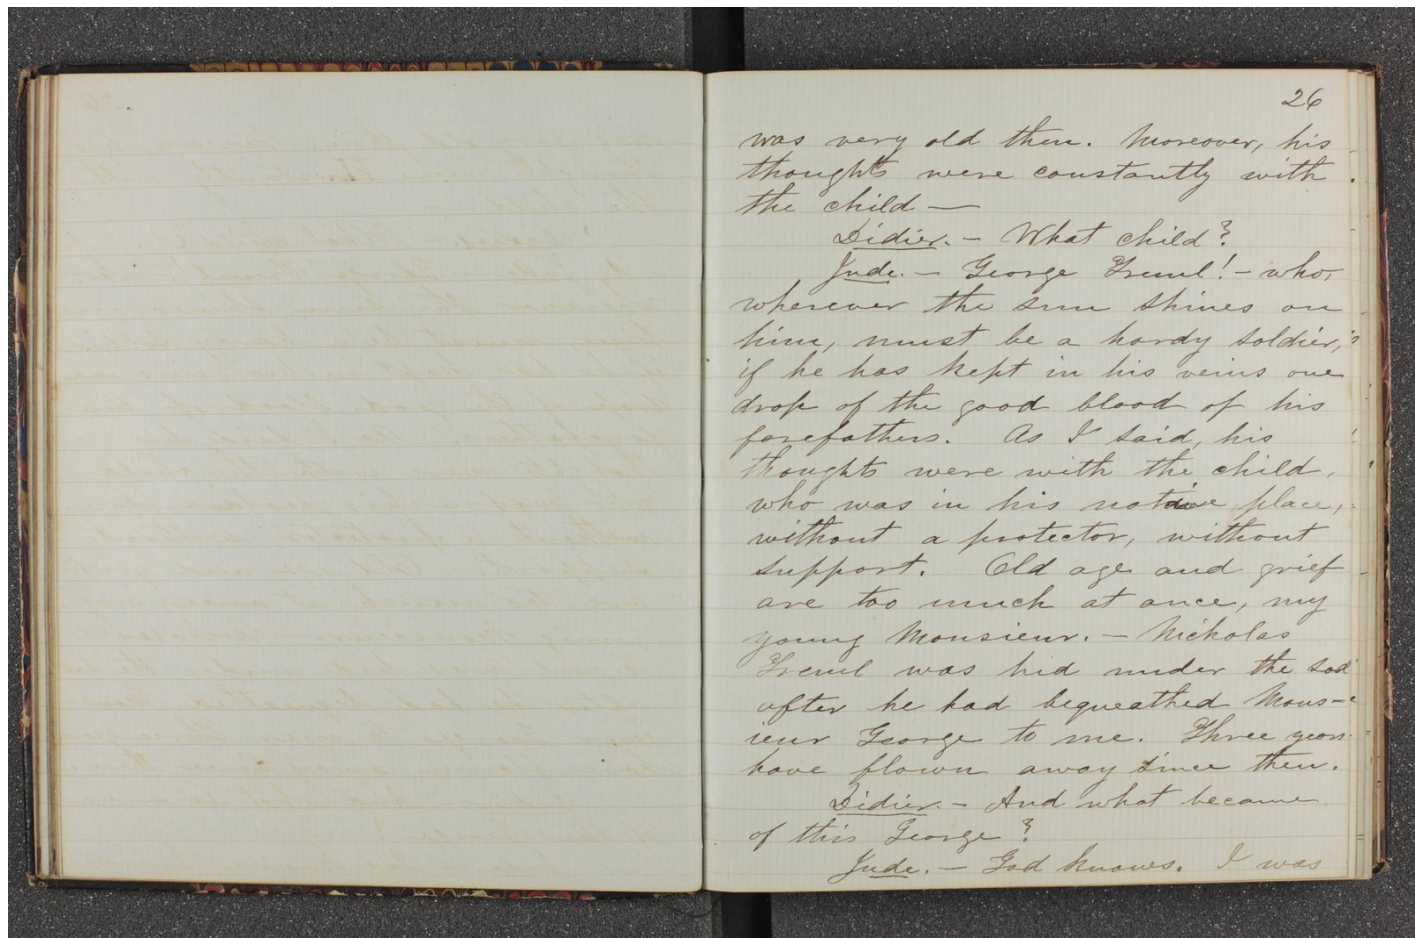 26
was very old then. Moreover, his
thoughts were constantly with
the child —
Didier. — What child?
Jude. — George Treml! — who,
wherever the sun shines on
him, must be a hardy soldier,
if he has kept in his veins one
drop of the good blood of his
forefathers. As I said, his
thoughts were with the child,
who was in his native place,
without a protector, without
support. Old age and grief
are too much at once, my
young Monsieur. — Nicholas
Treml was hid under the sod
after he had bequeathed Mons-
ieur George to me. Three years
have flown away since then.
Didier. — And what became
of this George?
Jude. — God knows. I was